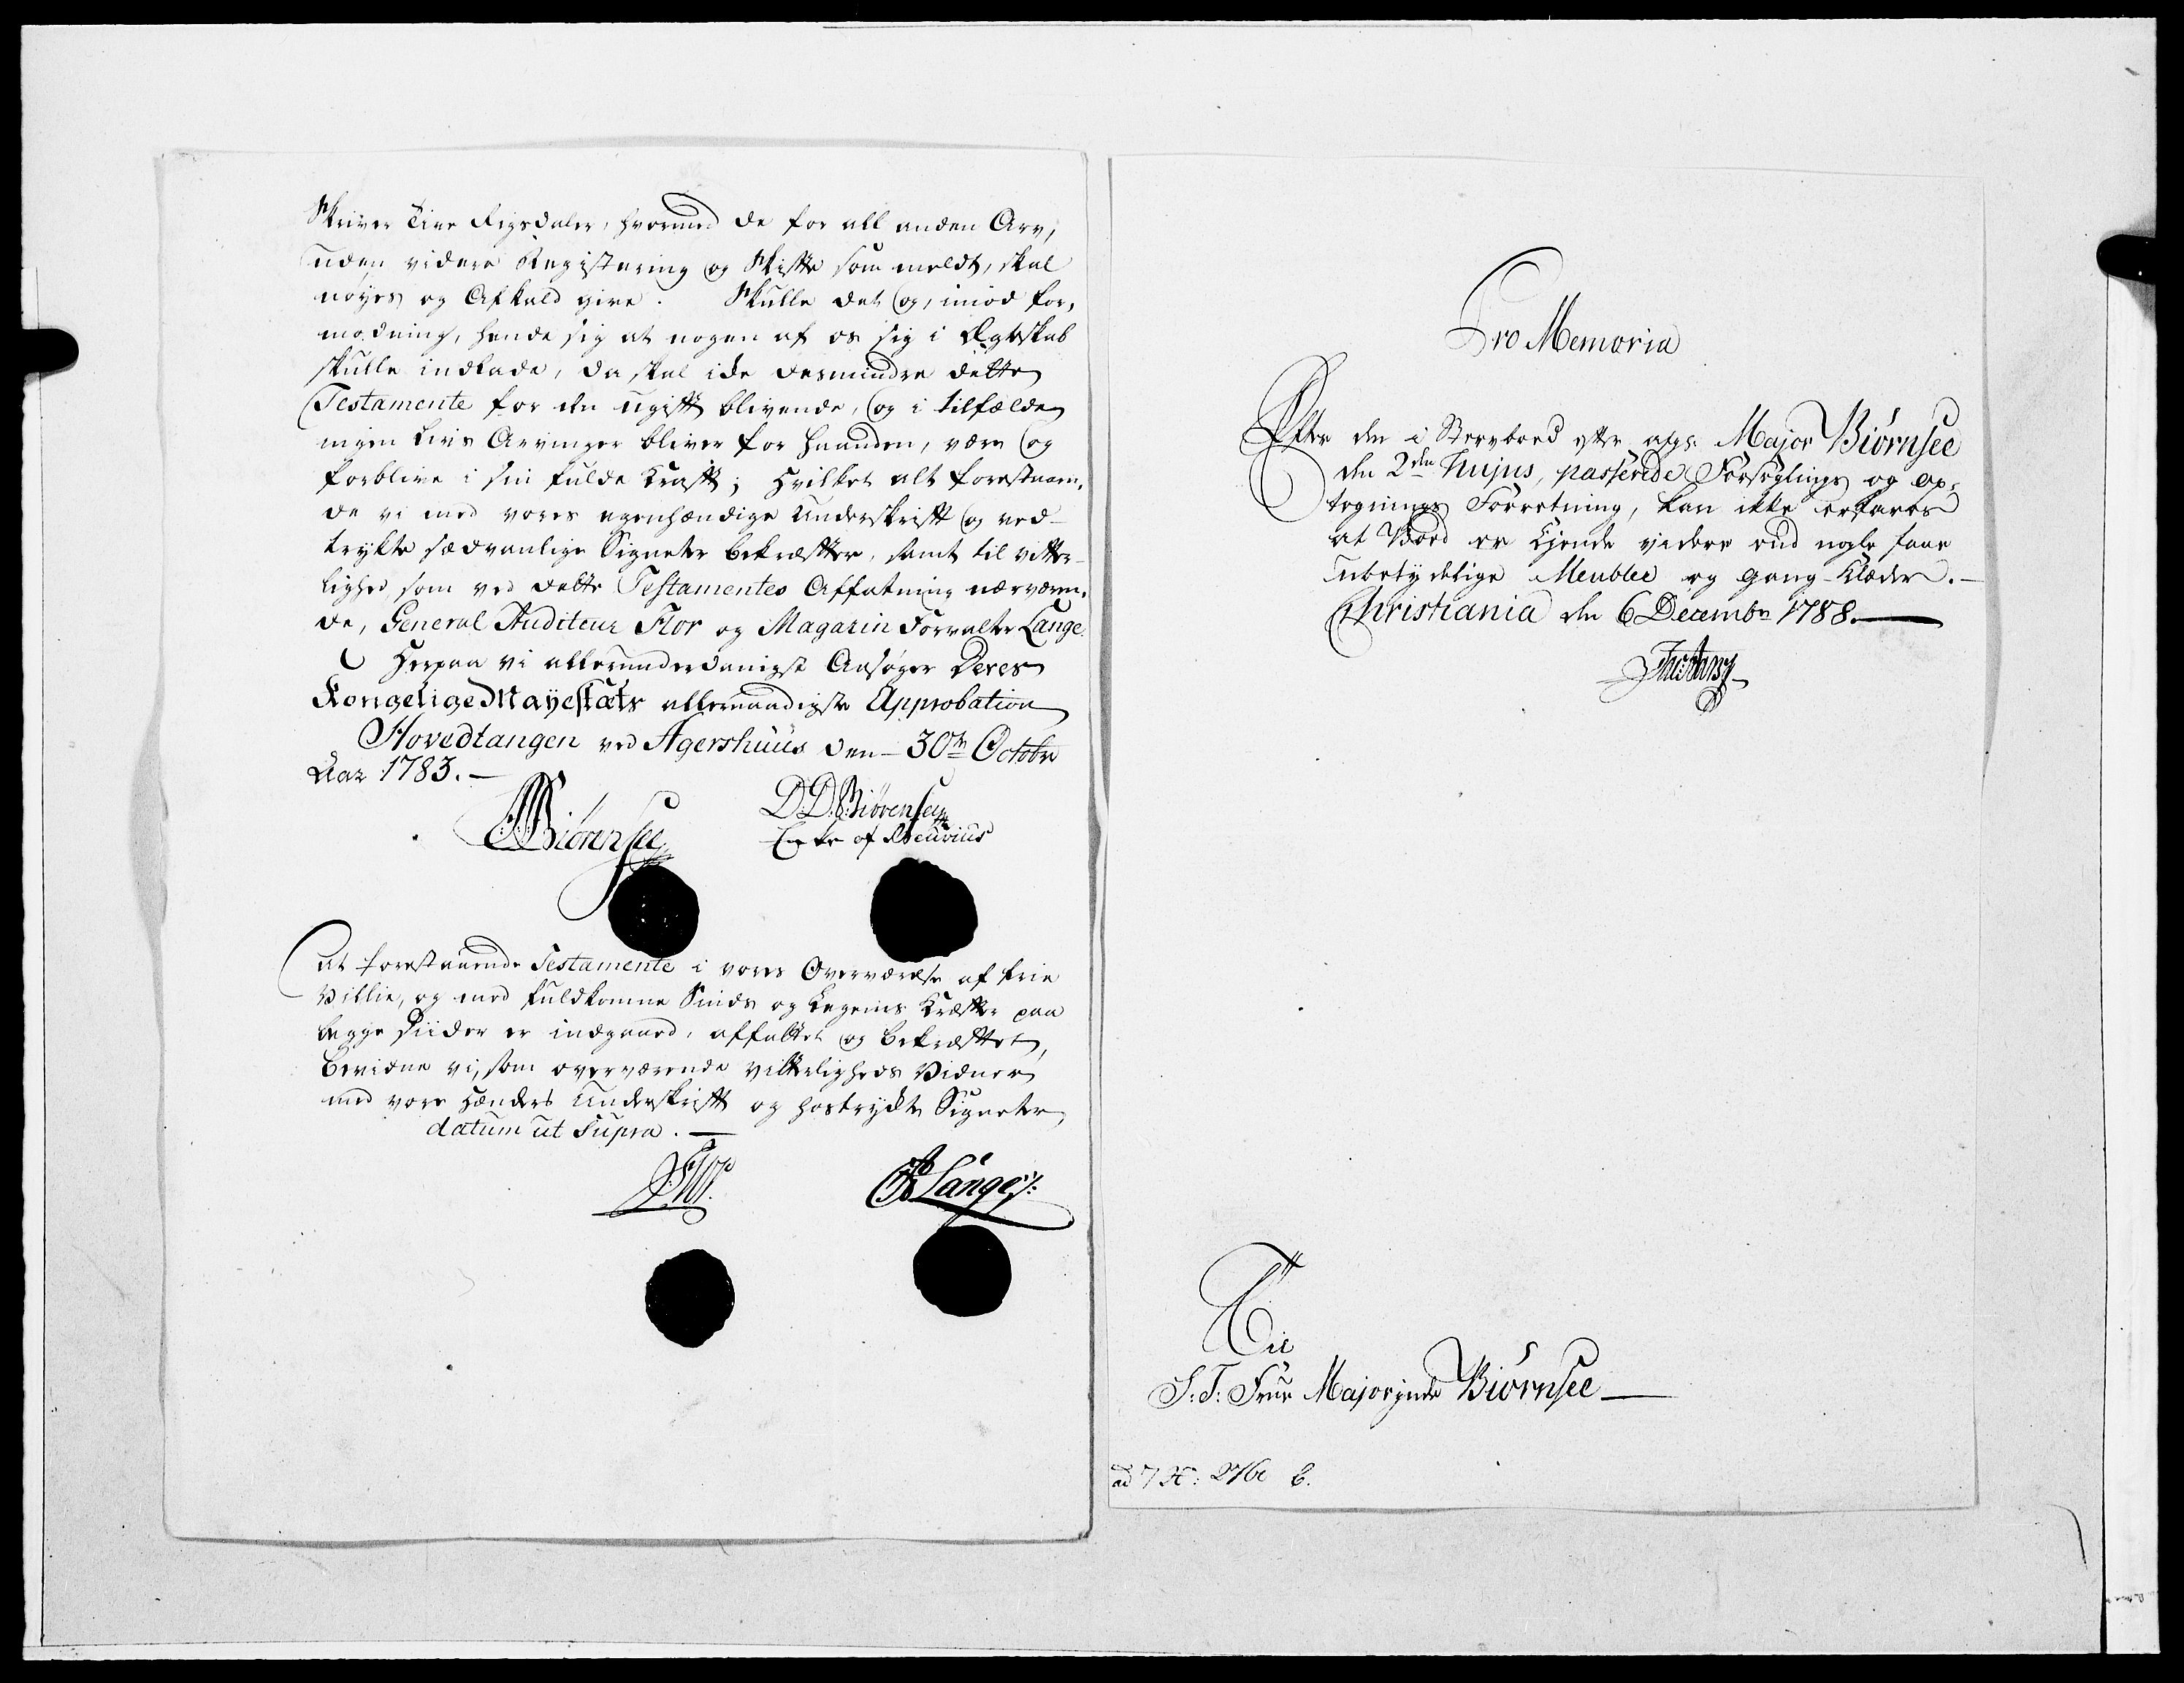 Skriver Tive Rigsdaler, hvormed de for all anden Arv,
uden videre Registering og Skifte som meldt, skal
nøyes og Afkald give. Skulle det og, imod for-
modning, hende sig at nogen af os sig i Ægteskab
skulle indlade, da skal icke desmindre dette
Testamente for den ugift blivende, og i tilfælde
ingen Livs Arvinger bliver for haanden, være og
forblive i sin fulde Kraft; hvilket alt forestaaen-
de vi med vores egenhændige Underskrift og ved-
trykte sædvanlige Signeter bekræfter, samt til vitter-
lighed som ved dette Testamentes Affatning nærværen-
de, General Auditeur Flor og Magazin Forvalter Lange.
Herpaa vi allerunderdanigst Ansøger Deres
Kongelige Mayestæts allernaadigste Approbation
Hovedtangen ved Agershuus den 30te Octobr
Aar 1783.
Biørensee
D.D. Biørensee
Enke af
At forestaaende Testamente i vores Overværelse af frie
Villie, og med fuldkomne Sinds og Legems Kræfter paa
begge Siider er indgaaed, affattet og bekræftet,
bevidne vi, som overværende vitterligheds Vidner
med vore Hænders Underskrift og hostrykte Signeter,
datum ut supra.
Flor
Lange
Pro Memoria
Efter den i Stervboed efter afg: Major Biørnsee
den 2den hujus, passerede Forseglings og op-
tegnings Forretning, kan ikke erfares
at Boed er Ejende videre end nogle faae
ubetydelige Meubler og gang-Klæder.
Christiania den 6 Decembr 1788.
Til
S:T: Frue Majorinde Biørnsee
ad 7 276